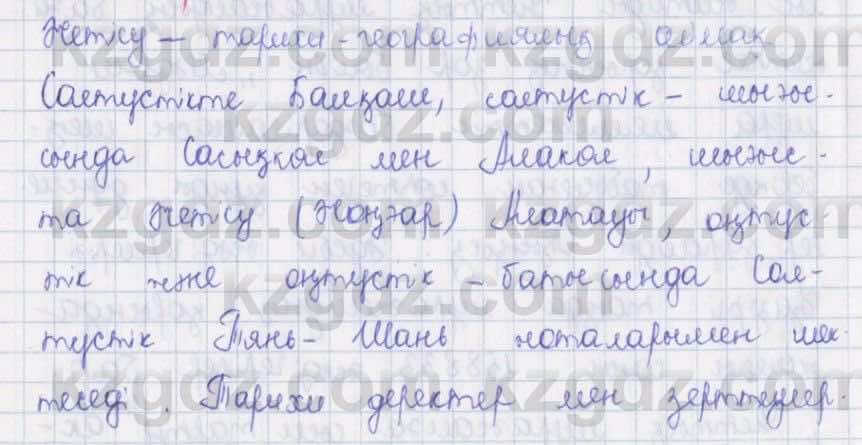 Жетісу – тарихи-географиялық аймақ
Солтүстікте Балқаш, солтүстік – шығы-
сында Сасықкөл мен Алакөл, шығыс-
та Жетісу (Жоңғар) Алатауы, оңтүс
тік және оңтүстік – батысында Сол-
түстік Тянь-Шань жоталарымен шек-
теседі. Тарихи деректер мен зерттеулер.
kzgdz.com